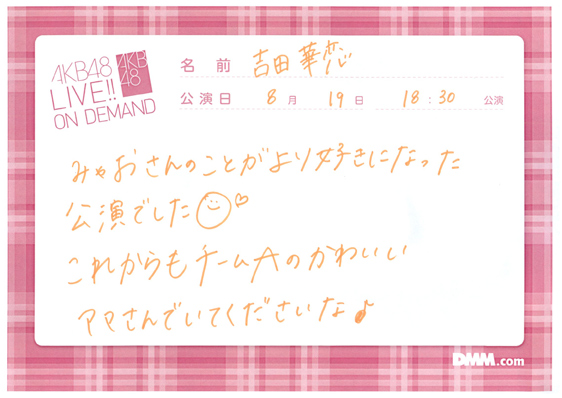 AKB48
LIVE!!
ON DEMAND
AKB
48
名前 吉田華恋
公演日 8月 19日 18:30 公演
みゃおさんのことがより好きになった
公演でした
これからもチームAのかわいい
ママさんでいてくださいな♪
DMM.com